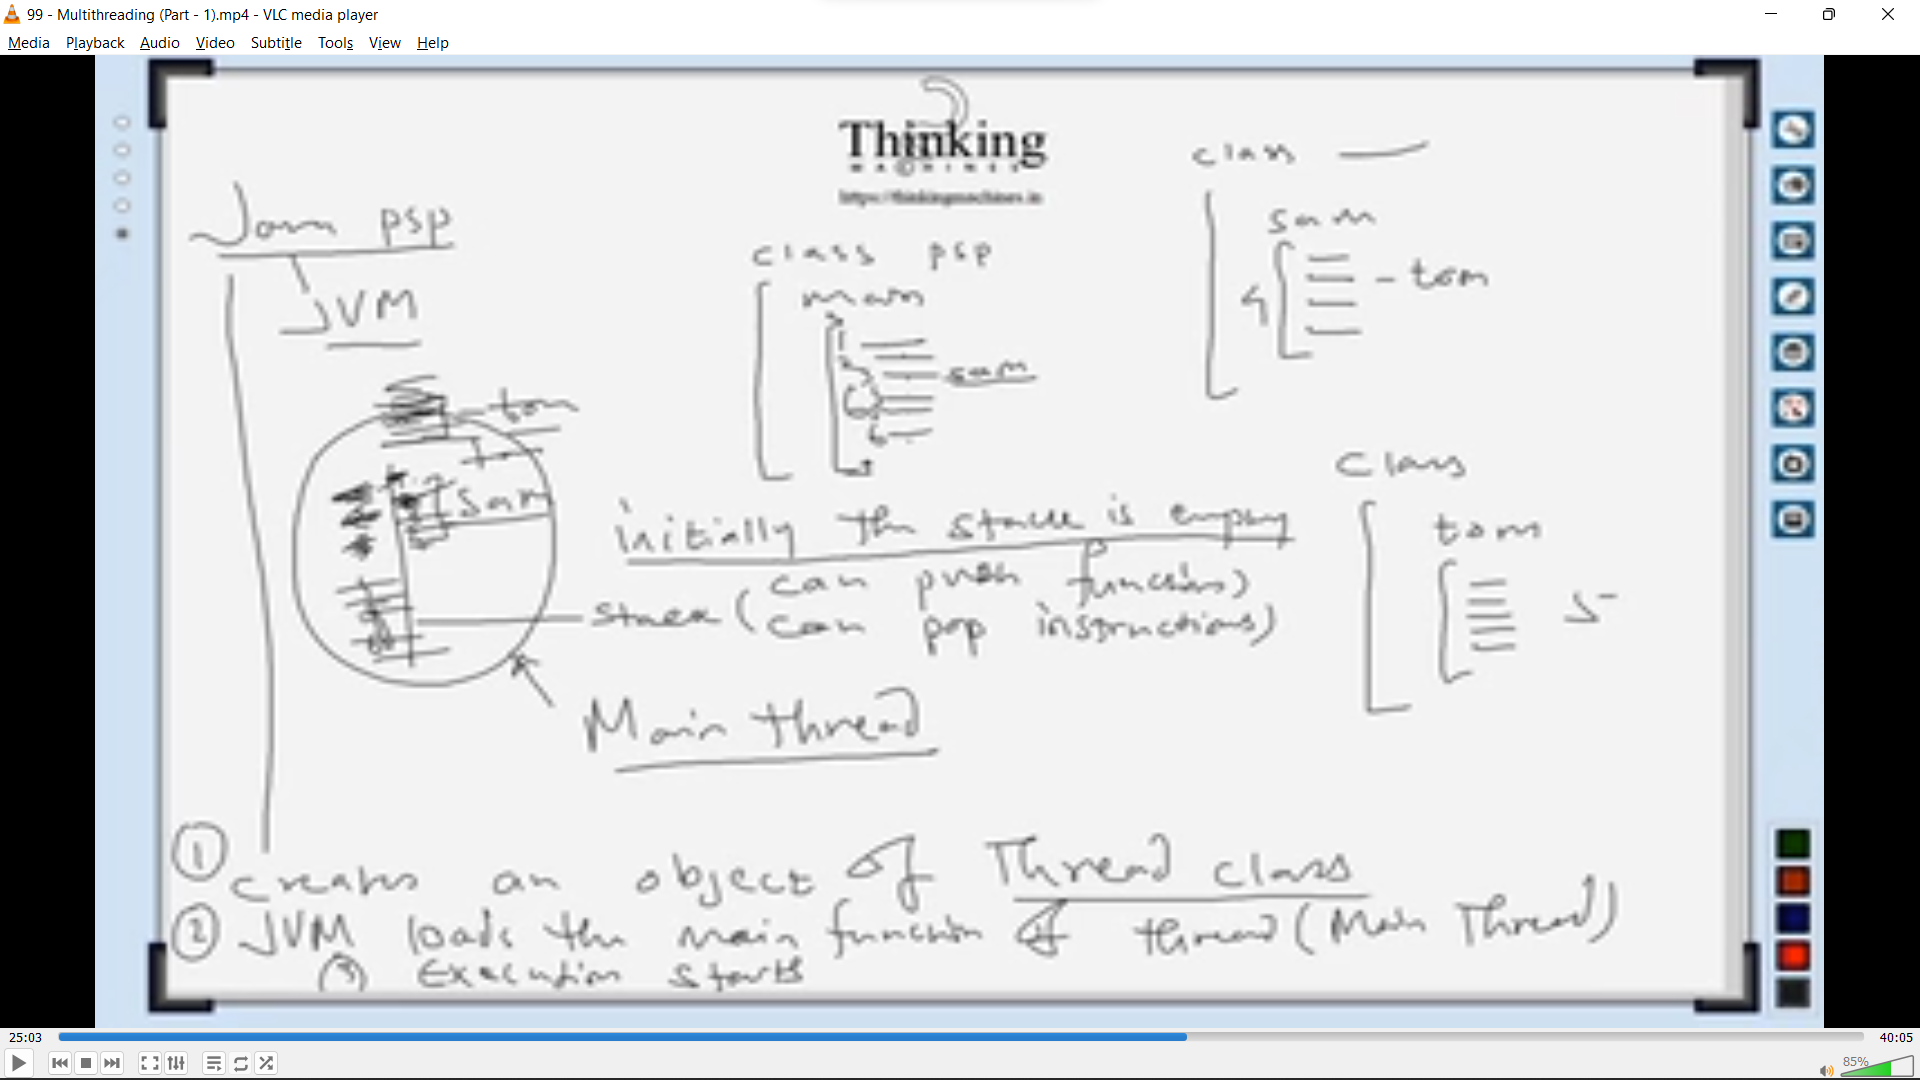 99 - Multithreading (Part - 1).mp4 - VLC media player
Media Playback Audio Video Subtitle Tools View Help
Thinking
MACHINES
https://thinkingmachines.in
Java psp
JVM
class psp
main
1
2
sam
6
class
sam
4
- tom
tom
sam
class
tom
5
initially the stack is empty
stack (can push functions)
(can pop instructions)
Main thread
① creates an object of Thread class
② JVM loads the main function of thread (Main Thread)
③ Execution starts
25:03
40:05
85%